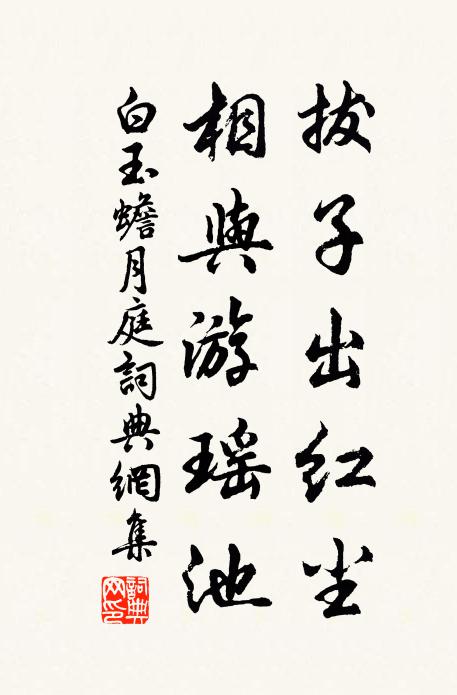 拔子出红尘
相與游瑶池
白玉蟾月庭詞典網集
詞典網印